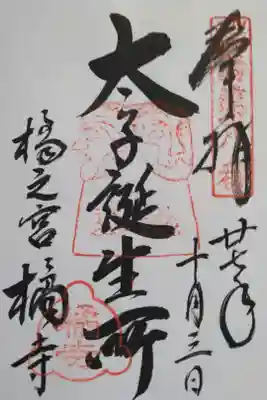 奉拜
廿七年
十月三日
太子誕生所
橘之宮 橘寺